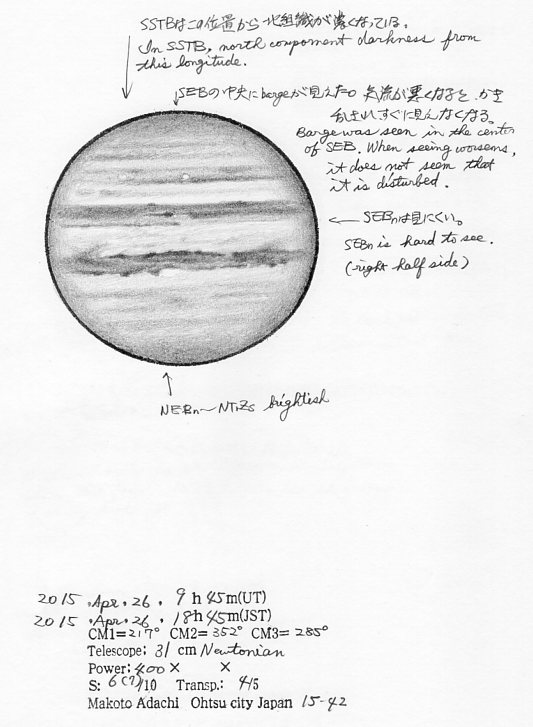 SSTBはこの位置から北組織が濃くなっている。
In SSTB, north component darkness from
this longitude.
SEBの中央にbargeが見えた。気流が悪くなると、かき
きれすぐに見えなくなる。
Barge was seen in the center
of SEB. When seeing worsens,
it does not seem that
it is disturbed.
← SEBnは見にくい。
SEBn is hard to see.
(right half side)
NEBn〜NTrZs brightish
2015 . Apr. 26 . 9 h 45m(UT)
2015 . Apr. 26 . 18h 45m(JST)
CM1= 217° CM2= 352° CM3= 285°
Telescope: 31 cm Newtonian
Power: 400 × ×
S: 6(7)/10 Transp.: 4/5
Makoto Adachi Ohtsu city Japan 15-42